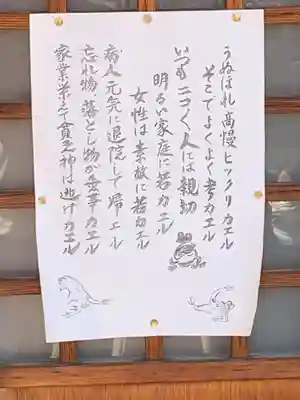 うぬぼれ高慢ヒックリカエル
そこでよくよく考カエル
いつもニコく人には親切
明るい家庭に若カエル
女性は素敵に若白エル
病人元気に退院して帰エル
忘れ物、落とし物が無事カエル
家業栄えて貧乏神は逃げカエル